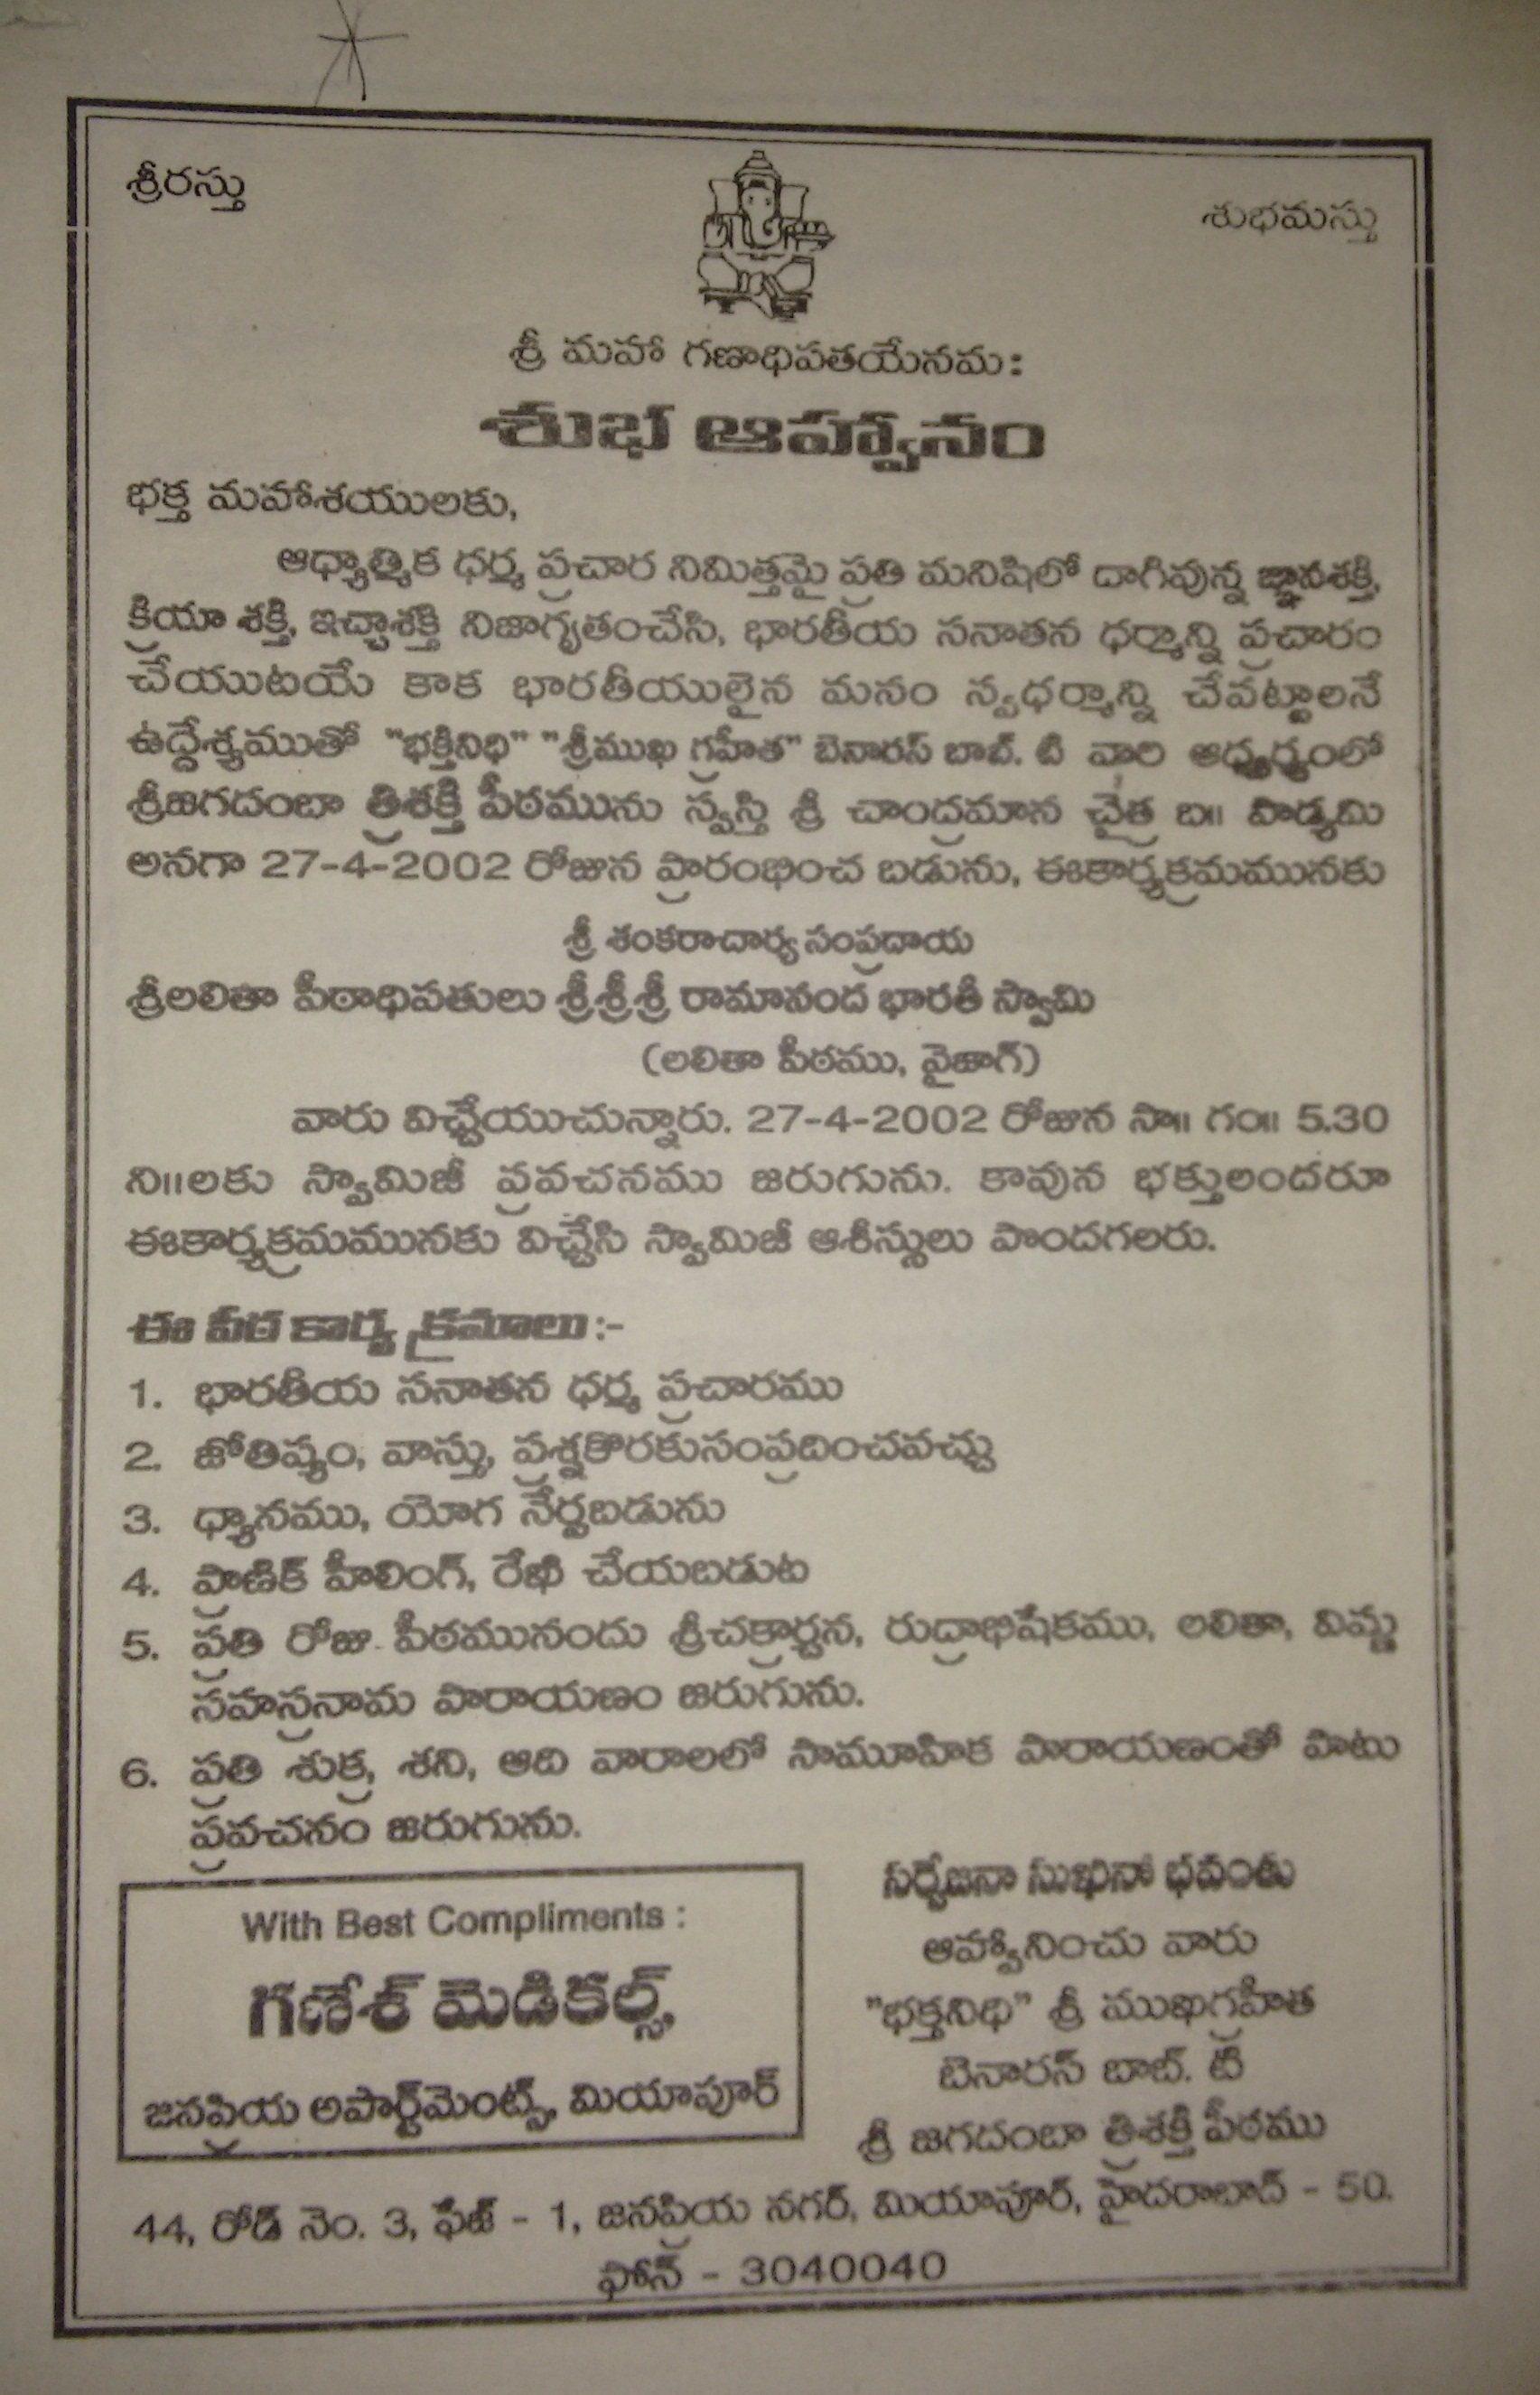 శ్రీరస్తు
శుభమస్తు
శ్రీ మహా గణాధిపతయేనమ:
శుభ ఆహ్వానం
భక్త మహాశయులకు,
ఆధ్యాత్మిక ధర్మ ప్రచార నిమిత్తమై ప్రతి మనిషిలో దాగివున్న జ్ఞానశక్తి,
క్రియా శక్తి, ఇచ్ఛాశక్తి నిజాగృతంచేసి, భారతీయ సనాతన ధర్మాన్ని ప్రచారం
చేయుటయే కాక భారతీయులైన మనం స్వధర్మాన్ని చేవట్టాలనే
ఉద్దేశ్యముతో "భక్తినిధి" "శ్రీముఖ గ్రహీత" బెనారస్ బాబ్. టి వారి ఆధ్వర్యంలో
శ్రీజగదంబా త్రిశక్తి పీఠమును స్వస్తి శ్రీ చాంద్రమాన చైత్ర బ॥ పాడ్యమి
అనగా 27-4-2002 రోజున ప్రారంభించ బడును, ఈకార్యక్రమమునకు
శ్రీ శంకరాచార్య సంప్రదాయ
శ్రీలలితా పీఠాధిపతులు శ్రీశ్రీశ్రీ రామానంద భారతీ స్వామి
(లలితా పీఠము, వైజాగ్)
వారు విచ్చేయుచున్నారు. 27-4-2002 రోజున సా॥ గం॥ 5.30
ని॥లకు స్వామిజీ ప్రవచనము జరుగును. కావున భక్తులందరూ
ఈకార్యక్రమమునకు విచ్చేసి స్వామిజీ ఆశీస్సులు పొందగలరు.
ఈ పీఠ కార్య క్రమాలు :-
1. భారతీయ సనాతన ధర్మ ప్రచారము
2. జోతిష్యం, వాస్తు, ప్రశ్నకొరకుసంప్రదించవచ్చు
3. ధ్యానము, యోగ నేర్పబడును
4. ప్రాణిక్ హీలింగ్, రేఖి చేయబడుట
5. ప్రతి రోజు పీఠమునందు శ్రీచక్రార్చన, రుద్రాభిషేకము, లలితా, విష్ణు
సహస్రనామ పారాయణం జరుగును.
6. ప్రతి శుక్ర, శని, ఆది వారాలలో సామూహిక పారాయణంతో పాటు
ప్రవచనం జరుగును.
With Best Compliments :
గణేశ్ మెడికల్స్,
జనప్రియ అపార్ట్‌మెంట్స్, మియాపూర్
సర్వేజనా సుఖినో భవంతు
ఆహ్వానించు వారు
"భక్తనిధి" శ్రీ ముఖగ్రహీత
బెనారస్ బాబ్. టి
శ్రీ జగదంబా త్రిశక్తి పీఠము
44, రోడ్ నెం. 3, ఫేజ్ - 1, జనప్రియ నగర్, మియాపూర్, హైదరాబాద్ - 50.
ఫోన్ - 3040040